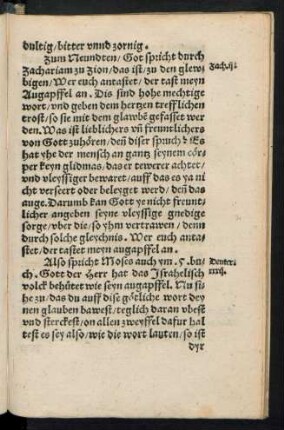 dultig/bitter vnnd zornig.
Zum Neundten/Got spricht durch
Zachariam zu Zion/das ist/zu den glew⸗
bigen/Wer euch antastet/der tast meyn
Augapffel an. Dis sind hohe mechtige
wort/vnd geben dem hertzen trefflichen
trost/so sie mit dem glawbē gefasset wer
den. Was ist lieblichers vn̄ freuntlichers
von Gott zuhören/den̄ diser spruch? Es
hat yhe der mensch an gantz seynem cör⸗
per keyn glidmas/das er tewerer achtet/
vnd vleyssiger bewaret/auff das es ya ni
cht verseert oder beleyget werd/den̄ das
auge. Darumb kan Gott ye nicht freunt/
licher angeben seyne vleyssige gnedige
sorge/vber die/so yhm vertrawen/denn
durch solche gleychnis. Wer euch anta⸗
stet/der tastet meyn augapffel an.
Also spricht Moses auch ym. 5. bu⸗
ch. Gott der Herr hat das Israhelisch
volck behütet wie seyn augapffel. Nu si
he zu/das du auff dise götliche wort dey
nen glauben bawest/teglich daran vbest
vnd sterckest/on allen zweyffel dafur hal
test es sey also/wie die wort lauten/so ist
dyr
Zach.ij.
Deuter.
xxxij.